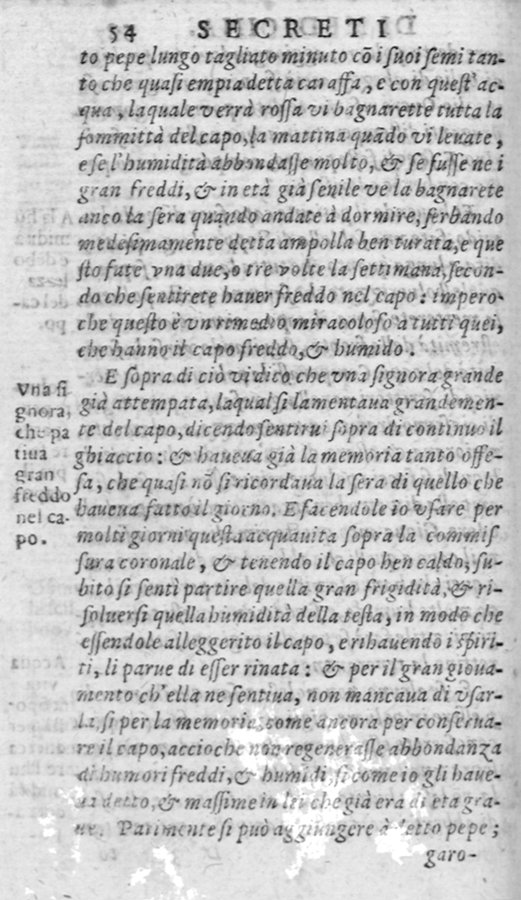 54 SECRETI
to pepe lungo tagliato minuto cõ i suoi semi tan-
to che quasi empia detta caraffa, e con quest'ac-
qua, laquale verrà rossa vi bagnarette tutta la
sommittà del capo, la mattina quãdo vi leuate,
e se l'humidità abbondasse molto, & se fusse ne i
gran freddi, & in età già senile ve la bagnarete
anco la sera quando andate à dormire, serbando
medesimamente detta ampolla ben turata, e que
sto fate vna due, o tre volte la settimana, secon-
do che sentirete hauer freddo nel capo: impero-
che questo è vn remedio miracoloso à tutti quei,
che hanno il capo freddo, & humido.
E sopra di ciò vi dico che vna signora grande
già attempata, laqual si lamentaua grandemen-
te del capo, dicendo sentirui sopra di continuo il
ghiaccio: & haueua già la memoria tanto offe-
sa, che quasi nõ si ricordaua la sera di quello che
haueua fatto il giorno. E facendole io vsare per
molti giorni questa acquauita sopra la commis
sura coronale, & tenendo il capo ben caldo, su-
bito si sentì partire quella gran frigidità, & ri-
soluersi quella humidità della testa, in modo che
essendole alleggerito il capo, e rihauendo i spiri-
ti, li parue di esser rinata: & per il gran gioua-
mento ch'ella ne sentiua, non mancaua di vsar-
la, si per la memoria, come ancora per conserua-
re il capo, accioche non regenerasse abbondanza
di humori freddi, & humidi, si come io gli haue-
ua detto, & massime in lei che già era di eta gra-
ue. Parimente si può aggiungere à detto pepe;
garo-
Vna si
gnora,
che pa
tiua
gran
freddo
nel ca-
po.